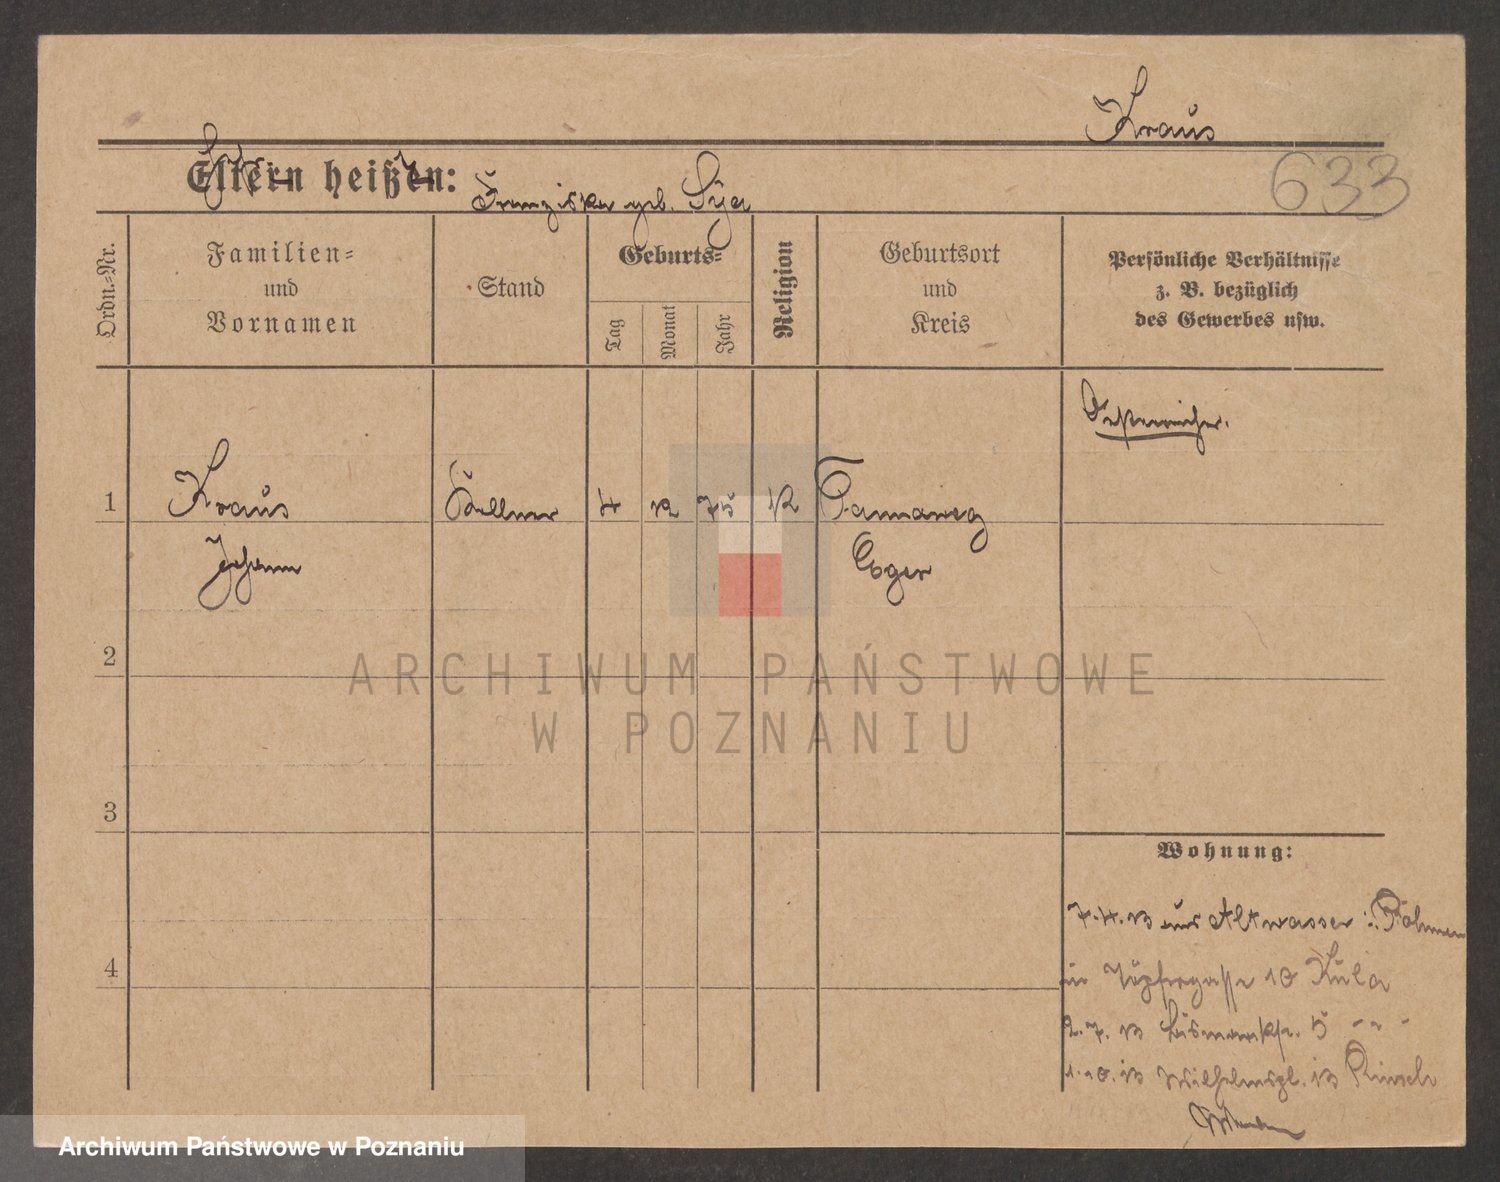 Kraus
633
Eltern heißen:
Franziska geb.
Ordn.-Nr.
Familien-
und
Vornamen
Stand
Geburts-
Tag
Monat
Jahr
Religion
Geburtsort
und
Kreis
Persönliche Verhältnisse
z. B. bezüglich
des Gewerbes usw.
Oesterreicher.
1
Kraus
Kellner
4
12
75
K
Johann
Eger
ARCHIWUM PAŃSTWOWE
W POZNANIU
2
3
Wohnung:
7.4.13 aus Altwasser Böhmen
4
in Töpfergasse 10 Kula
2.7.13 Bismarckstr. 5
1.10.13 Wilhelmspl. 13
Archiwum Państwowe w Poznaniu